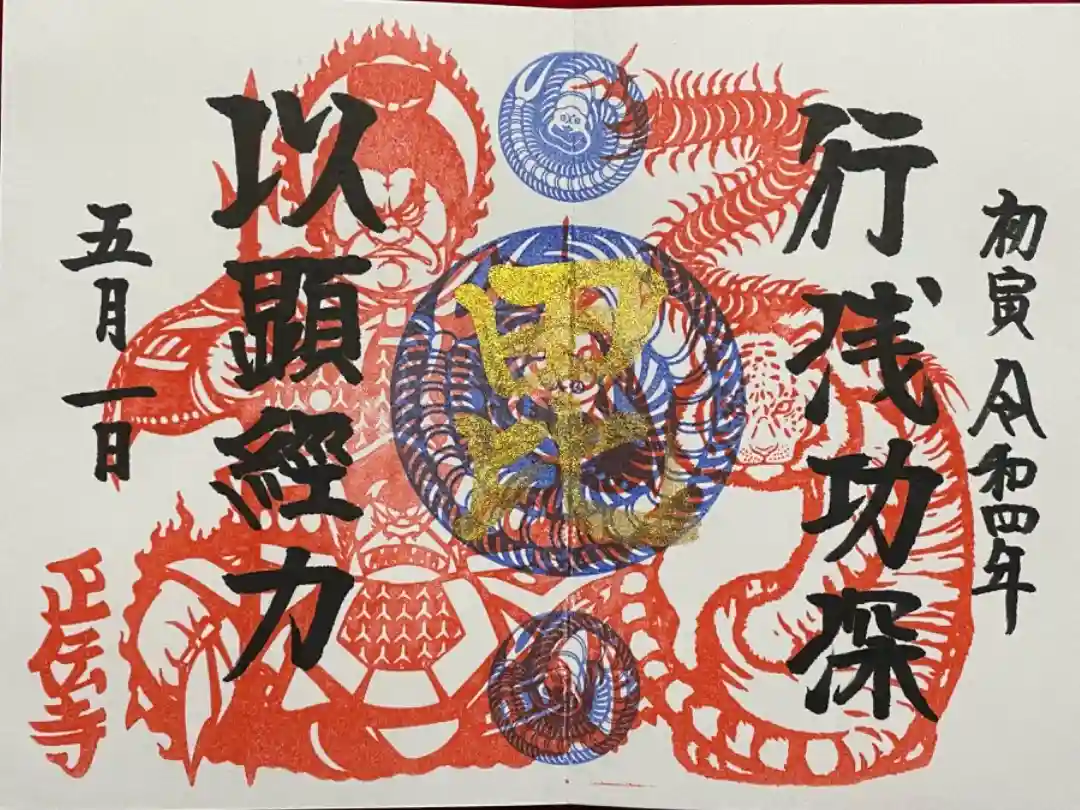 初寅 令和四年
行浅功深
毘
以顕經力
五月一日
正伝寺